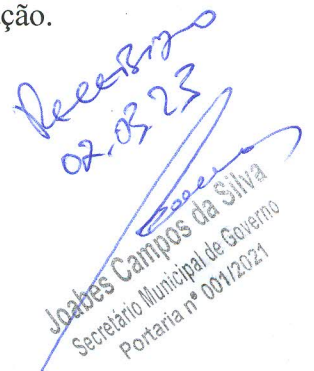 ção.
Recebido
02.03.23
Joabes Campos da Silva
Secretário Municipal de Governo
Portaria nº 001/2021